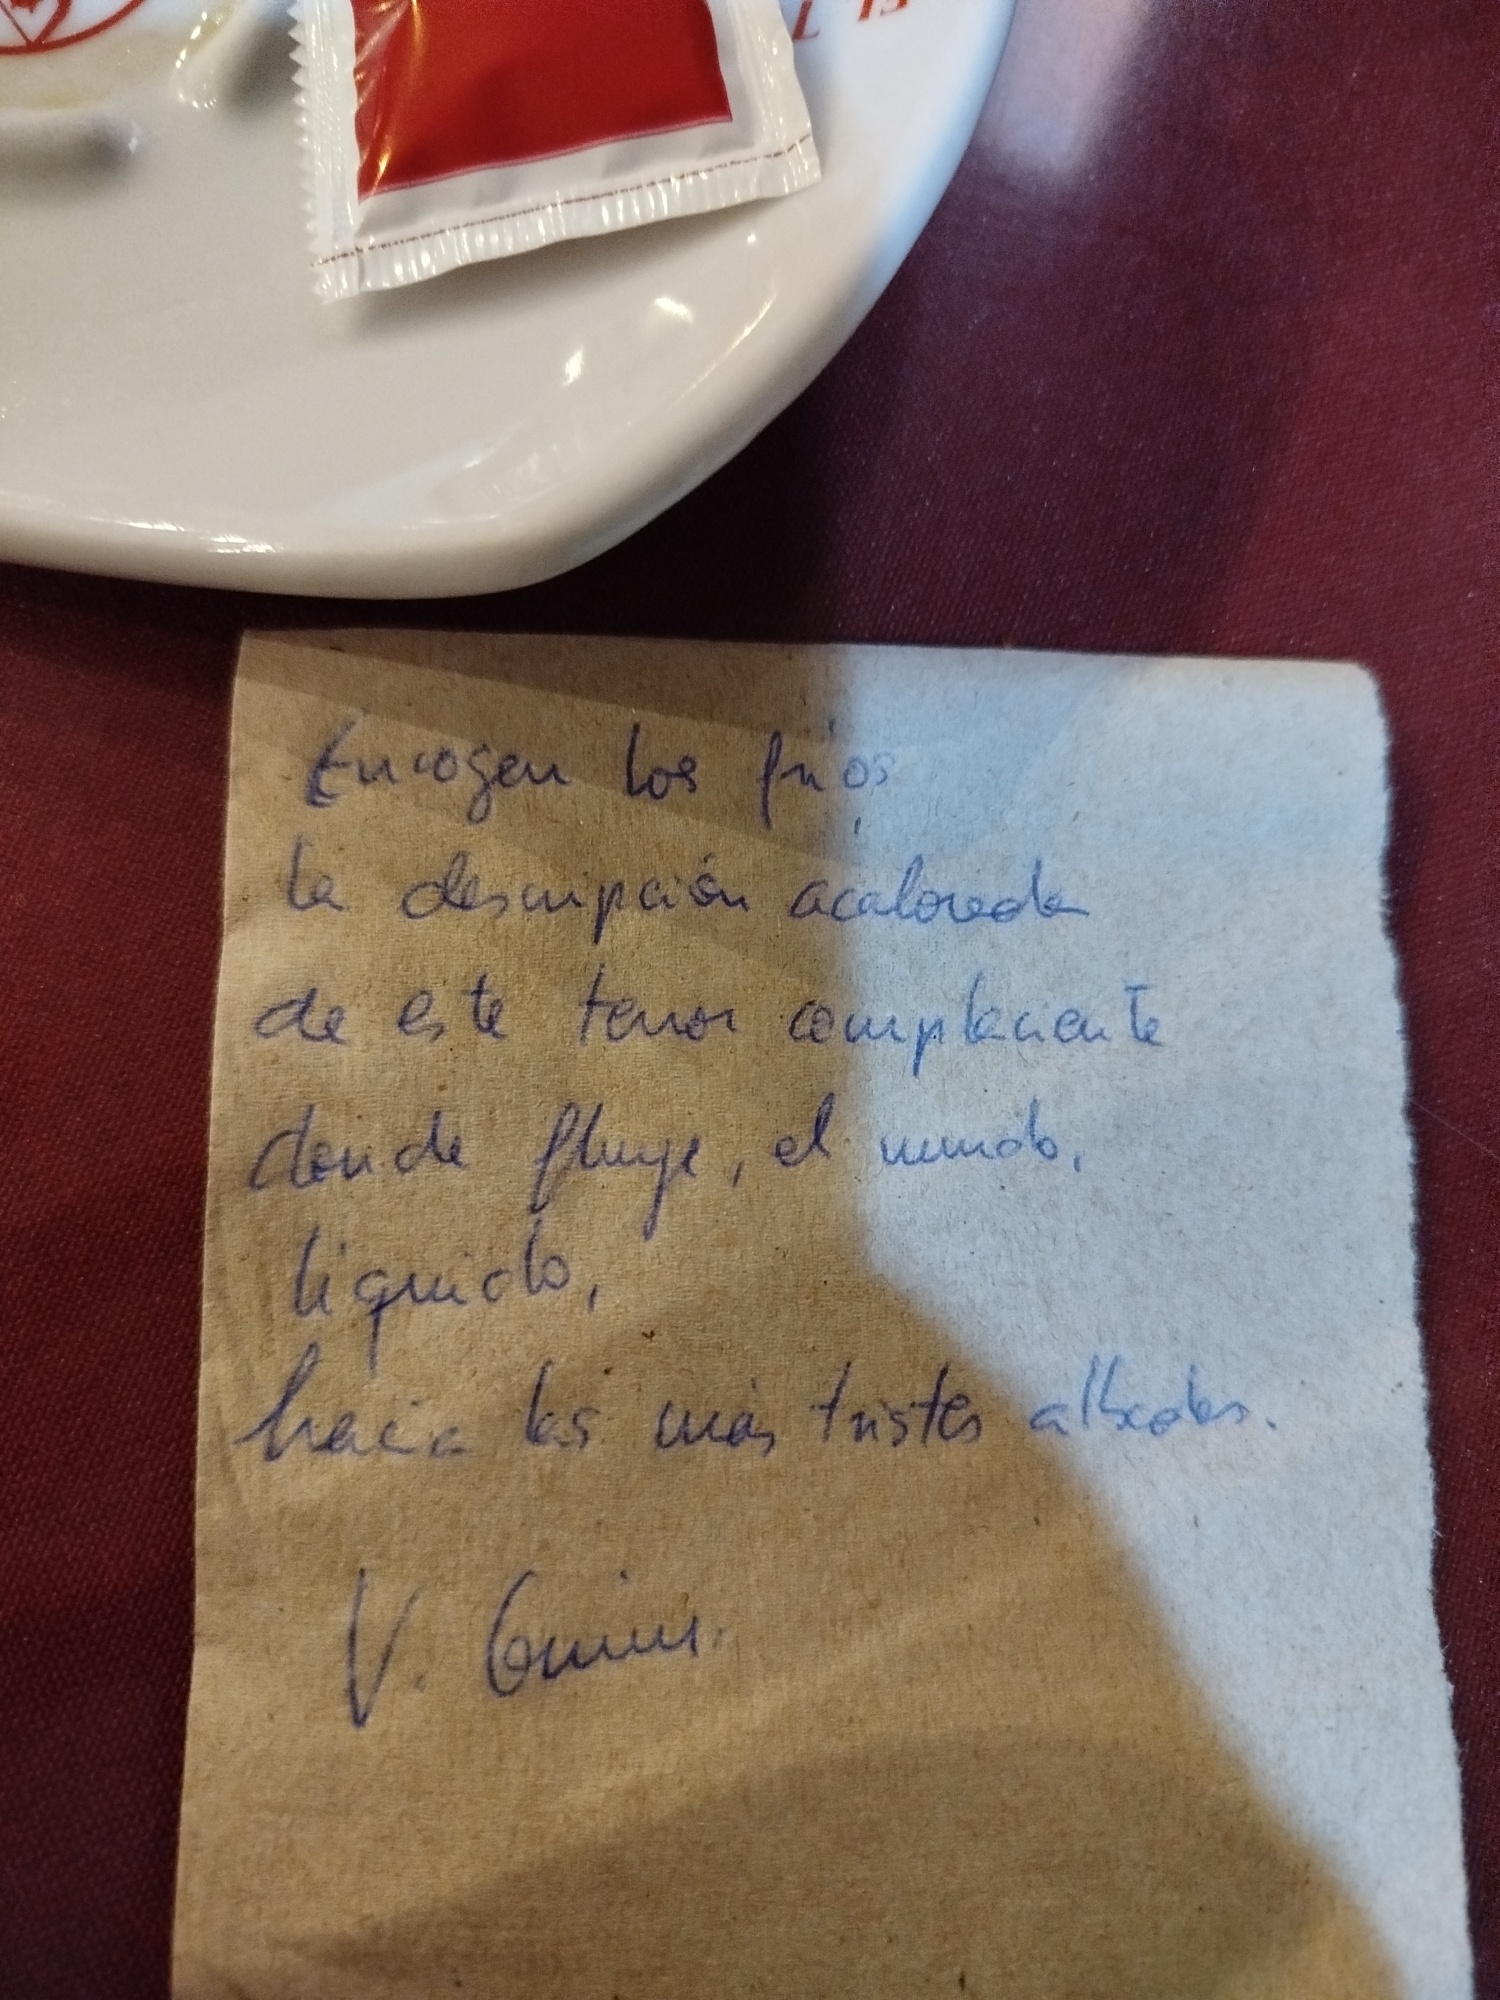 Encogen los fríos
la descripción acalorada
de este tenor complaciente
donde fluye, el mundo,
líquido,
hacia las más tristes albadas.
V.